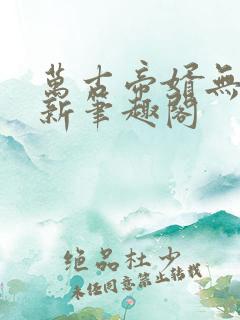 萬古帝婿無
新筆趣閣
绝品杜少
未经同意禁止转载